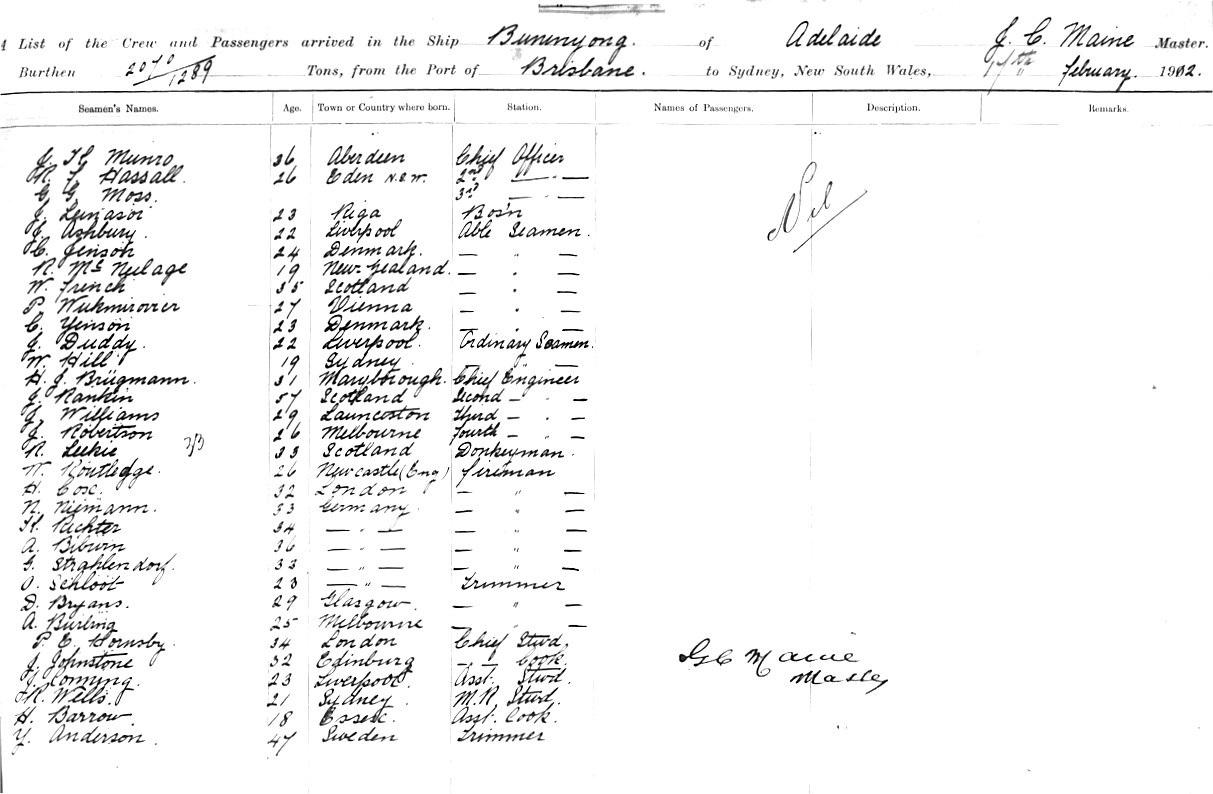 A List of the Crew and Passengers arrived in the Ship Buninyong. of Adelaide J. C. Maine Master.
Burthen 2070/1289 Tons, from the Port of Brisbane. to Sydney, New South Wales, 17th February 1902.
Seamen's Names. Age. Town or Country where born. Station. Names of Passengers. Description. Remarks.
Munro 36 Aberdeen Chief Officer
R. Hassall. 26 Eden N.S.W. 2nd — " —
C. G. Moss. 3rd — " —
J. 23 Riga Bos'n Nil
Ashbury. 22 Liverpool Able Seamen.
C. Jenson 24 Denmark. — " —
R. McNeilage 19 New Zealand. — " —
W. French 35 Scotland — " —
P. Wukmirovier 27 Vienna — " —
C. Yenson 23 Denmark. — " —
J. Duddy. 22 Liverpool. Ordinary Seamen.
W. Hill 19 Sydney. — " —
H. J. Brügmann. 31 Maryborough. Chief Engineer
J. Rankin 57 Scotland Second — " —
J. Williams 29 Launceston Third — " —
J. Robertson 26 Melbourne Fourth — " —
R. Leekie 33 Scotland Donkeyman.
W. Routledge. 26 Newcastle (Eng) Fireman
H. Cose. 32 London — " —
N. Niemann. 33 Germany. — " —
Richter 34 — " — — " —
A. 36 — " — — " —
G. Strahlendorf. 33 — " — — " —
O. Schloot 23 — " — Trimmer
D. Bryans. 29 Glasgow. — " —
A. Burling 25 Melbourne — " —
P. E. Hornsby. 34 London Chief Stwd.
J. Johnstone 32 Edinburg — " — Cook.
23 Liverpool. Asst. Stwd.
R. Wells. 21 Sydney. M.R. Stwd.
H. Barrow. 18 Essex. Asst. Cook.
Y. Anderson. 47 Sweden Trimmer
J C Maine
Master